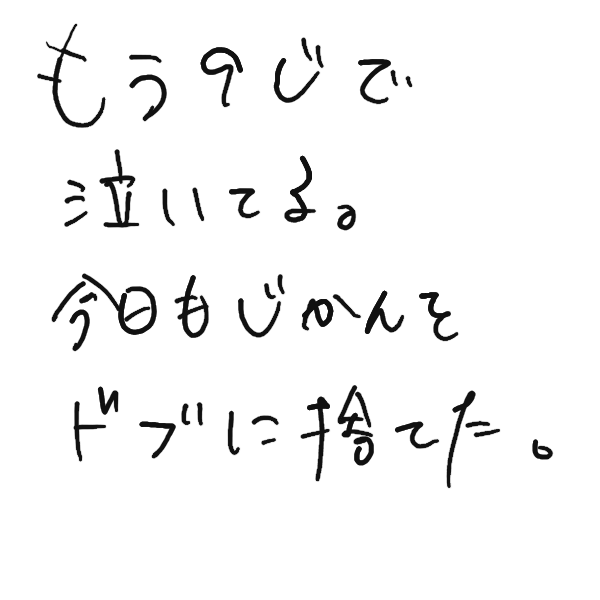 もう9じで
泣いてる。
今日もじかんを
ドブに捨てた。